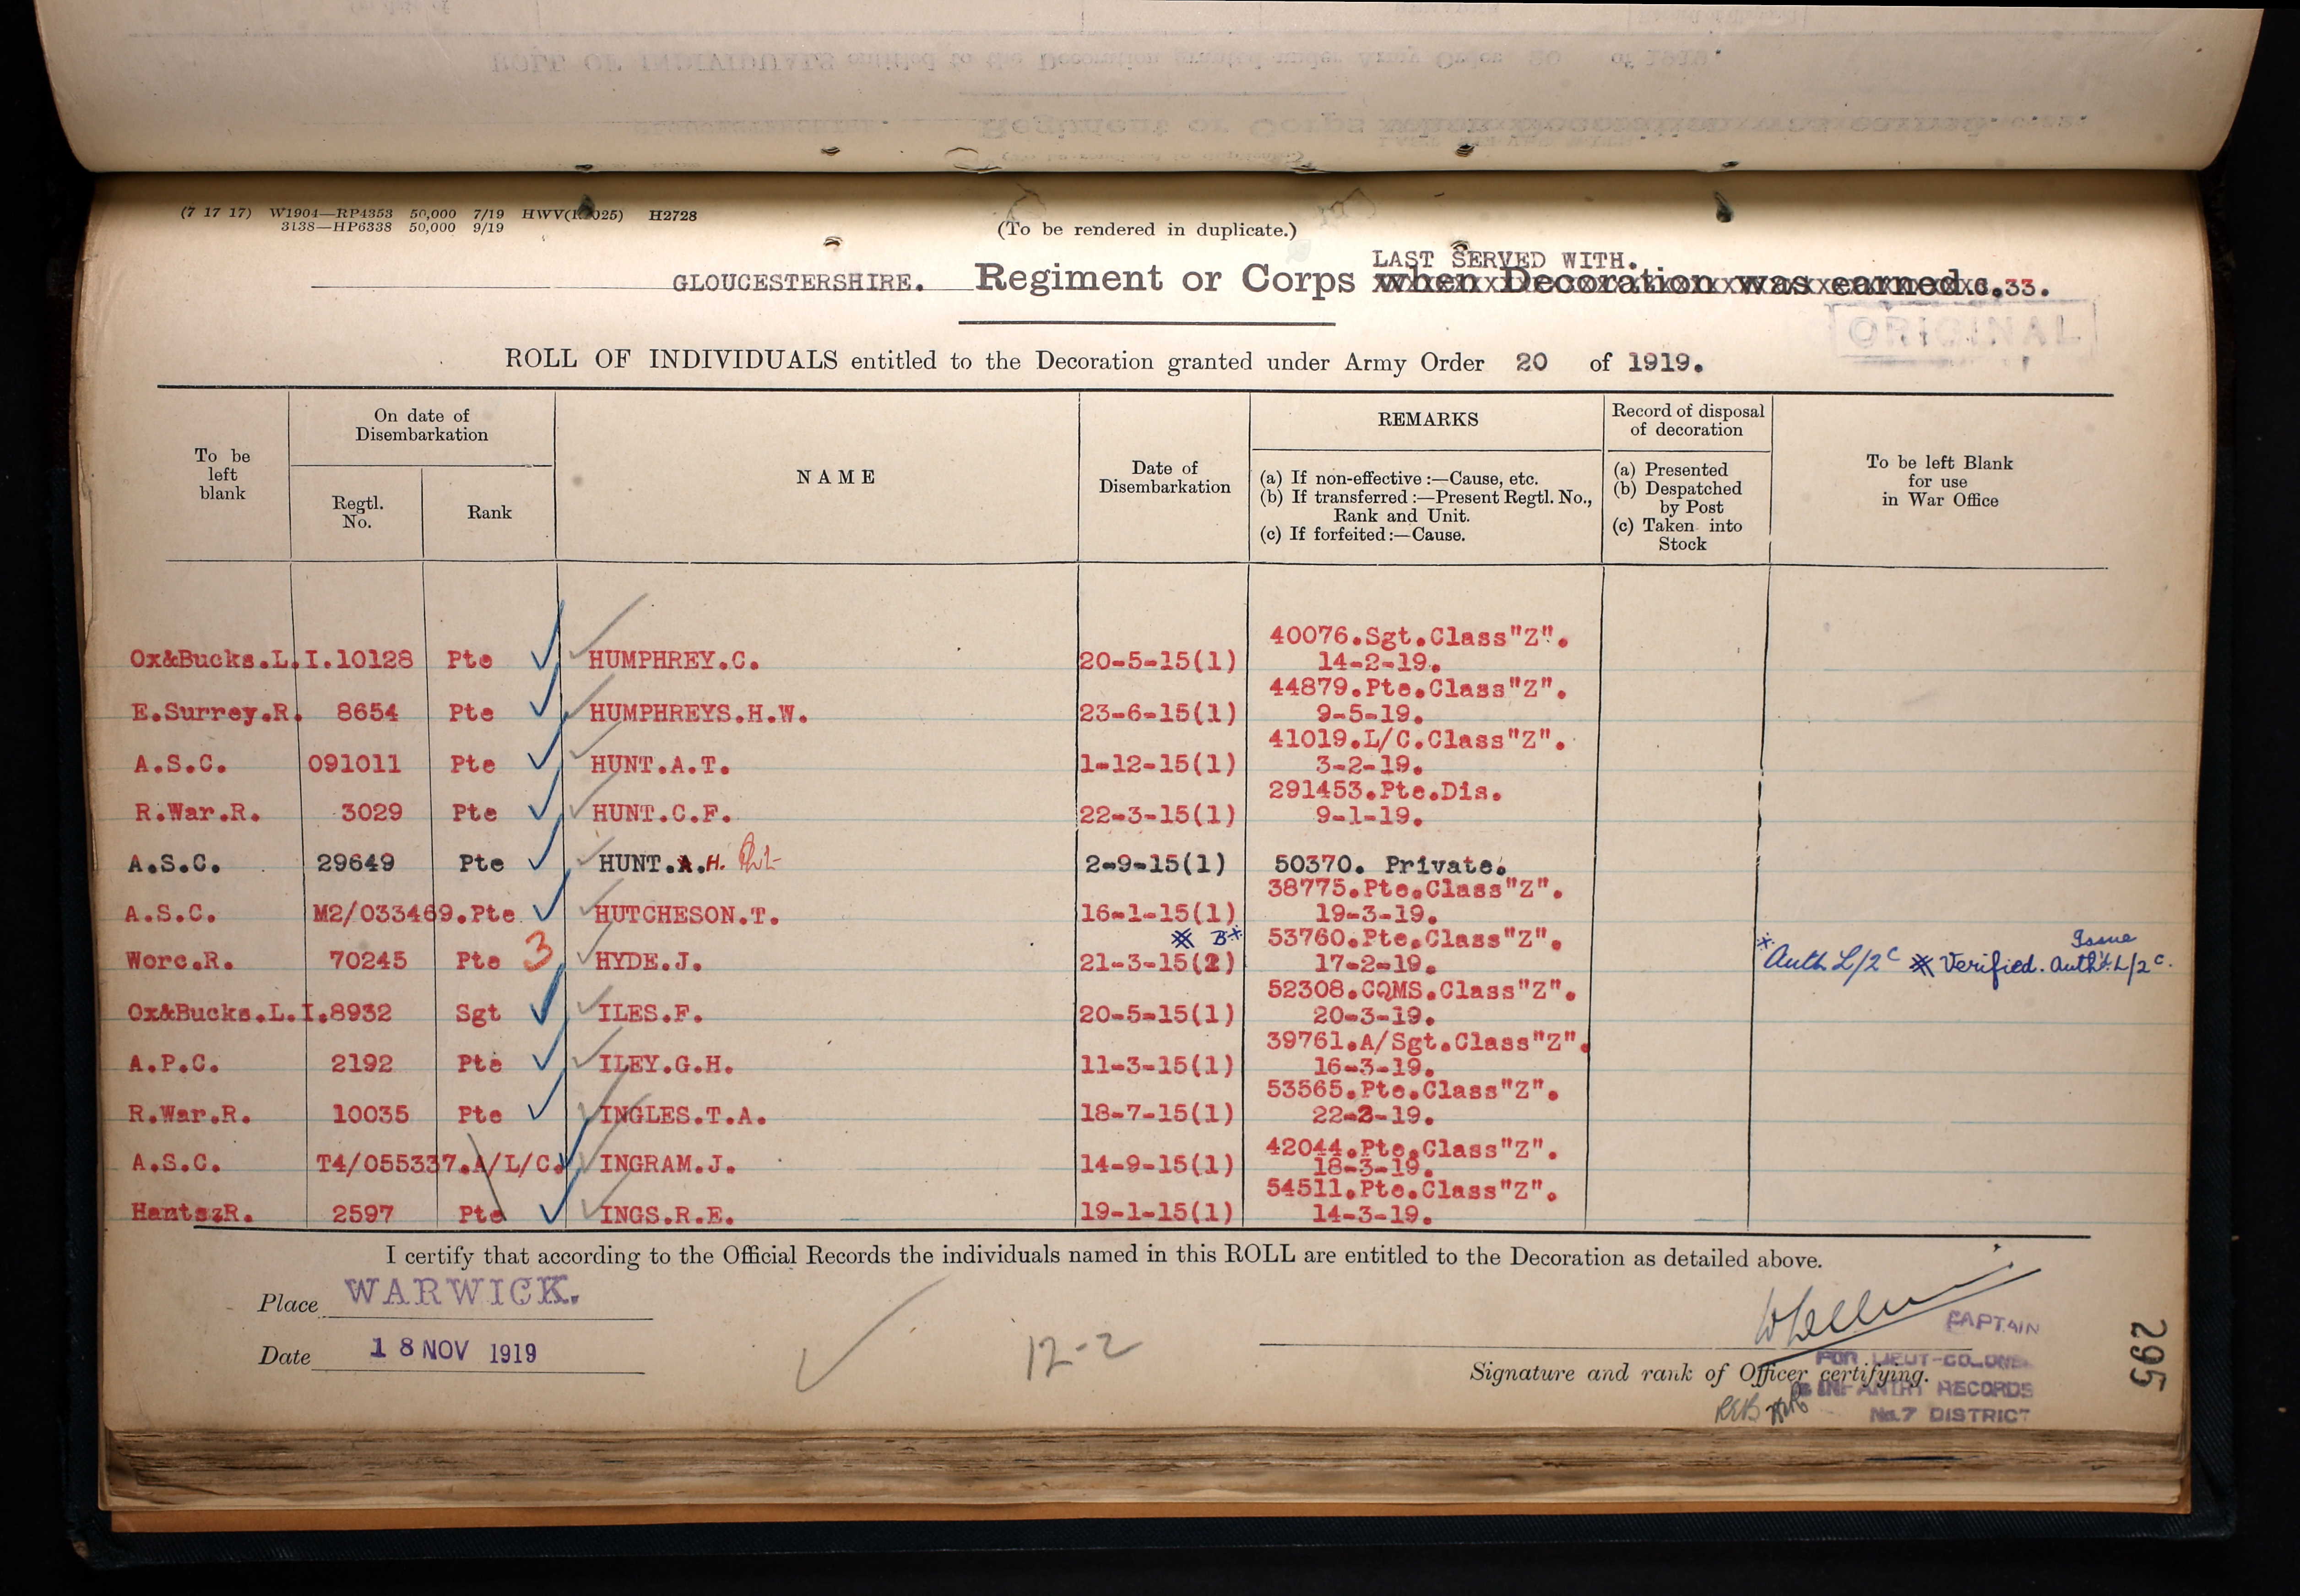 (7 17 17) W1904—RP4353 50,000 7/19 HWV( 025) H2728
3138—HP6338 50,000 9/19
(To be rendered in duplicate.)
LAST SERVED WITH.
GLOUCESTERSHIRE. Regiment or Corps when Decoration was earned. 33.
ORIGINAL
ROLL OF INDIVIDUALS entitled to the Decoration granted under Army Order 20 of 1919.
To be left blank
On date of Disembarkation
Regtl. No.
Rank
NAME
Date of Disembarkation
REMARKS
(a) If non-effective :—Cause, etc.
(b) If transferred :—Present Regtl. No., Rank and Unit.
(c) If forfeited :—Cause.
Record of disposal of decoration
(a) Presented
(b) Despatched by Post
(c) Taken into Stock
To be left Blank for use in War Office
40076.Sgt.Class"Z".
Ox&Bucks.L.I.10128 Pte HUMPHREY.C. 20-5-15(1) 14-2-19.
44879.Pte.Class"Z".
E.Surrey.R. 8654 Pte HUMPHREYS.H.W. 23-6-15(1) 9-5-19.
41019.L/C.Class"Z".
A.S.C. 091011 Pte HUNT.A.T. 1-12-15(1) 3-2-19.
291453.Pte.Dis.
R.War.R. 3029 Pte HUNT.C.F. 22-3-15(1) 9-1-19.
A.S.C. 29649 Pte HUNT.A.H. 2-9-15(1) 50370. Private.
38775.Pte.Class"Z".
A.S.C. M2/033469.Pte HUTCHESON.T. 16-1-15(1) 19-3-19.
B* 53760.Pte.Class"Z". Issue
Worc.R. 70245 Pte 3 HYDE.J. 21-3-15(2) 17-2-19. * Auth L/2c Verified. Auth L/2c.
52308.CQMS.Class"Z".
Ox&Bucks.L.I.8932 Sgt ILES.F. 20-5-15(1) 20-3-19.
39761.A/Sgt.Class"Z".
A.P.C. 2192 Pte ILEY.G.H. 11-3-15(1) 16-3-19.
53565.Pte.Class"Z".
R.War.R. 10035 Pte INGLES.T.A. 18-7-15(1) 22-2-19.
42044.Pte.Class"Z".
A.S.C. T4/055337.A/L/C. INGRAM.J. 14-9-15(1) 18-3-19.
54511.Pte.Class"Z".
HantszR. 2597 Pte INGS.R.E. 19-1-15(1) 14-3-19.
I certify that according to the Official Records the individuals named in this ROLL are entitled to the Decoration as detailed above.
Place WARWICK.
Date 18 NOV 1919
12-2
CAPTAIN
FOR LIEUT-COLONEL
Signature and rank of Officer certifying.
INFANTRY RECORDS
No.7 DISTRICT
295